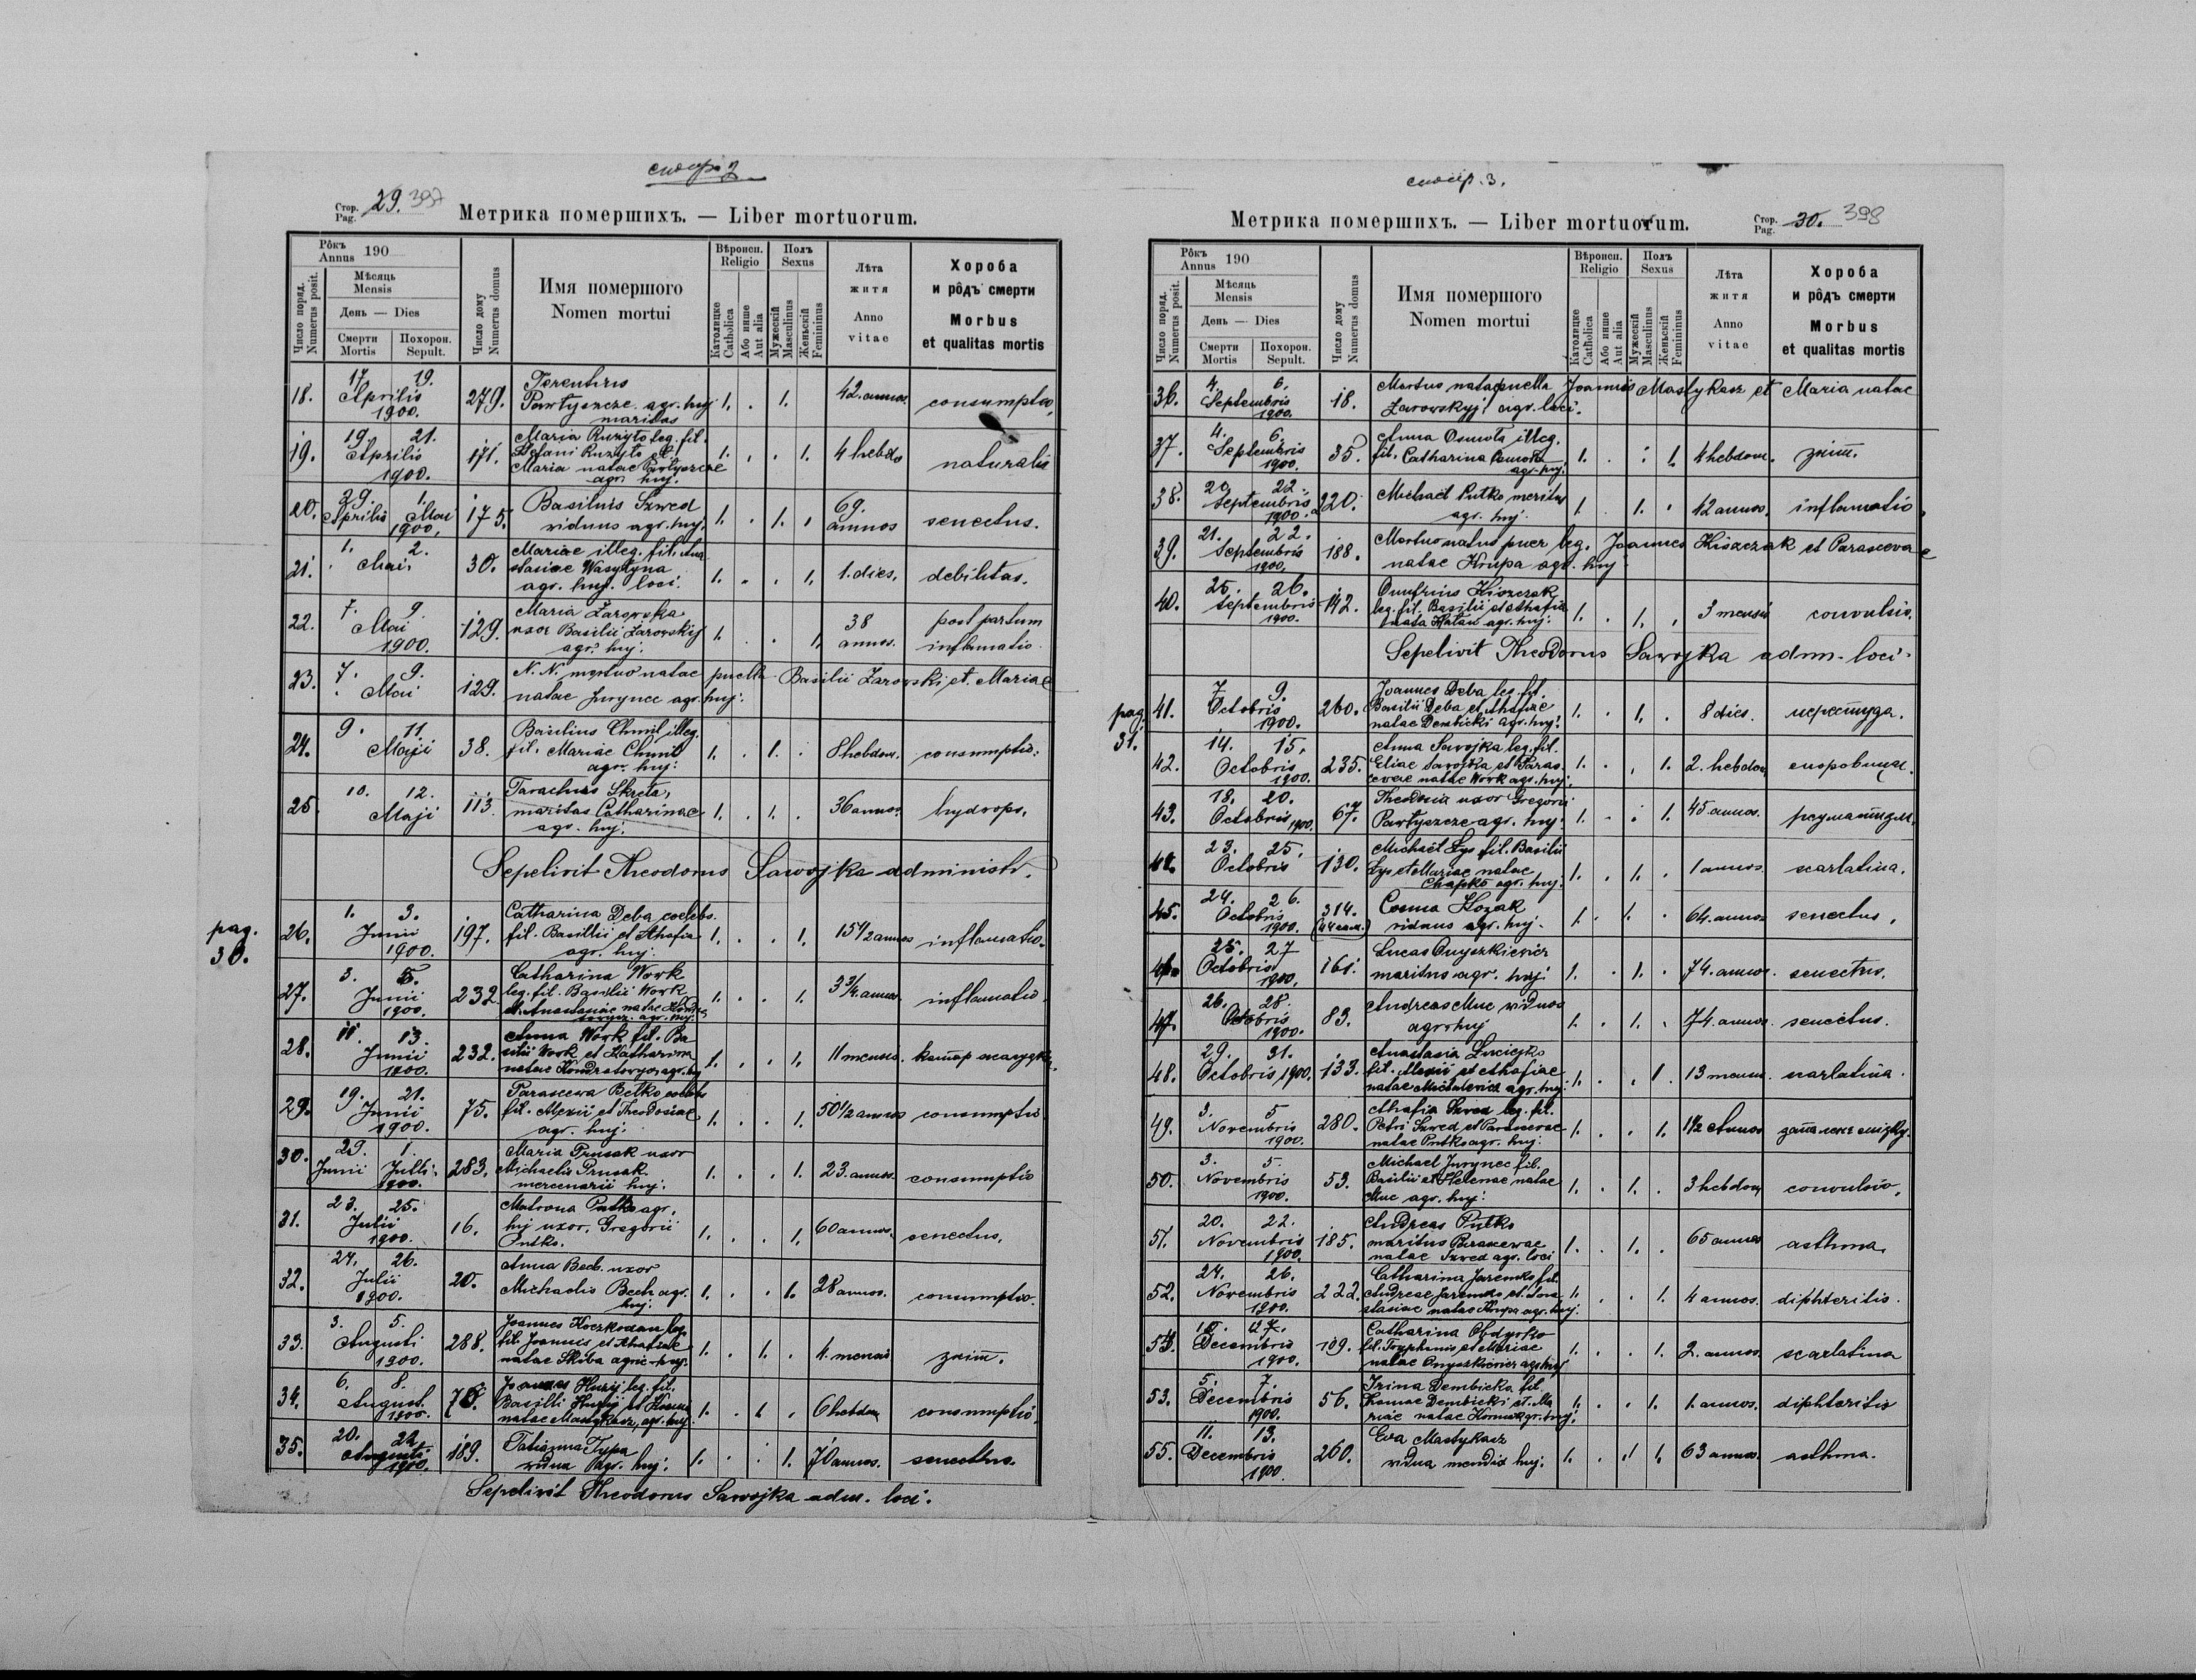 стор. 2
Стор.
Pag. 29. 397
Метрика помершихъ. — Liber mortuorum.
Рôкъ
Annus 190
Вѣроисп.
Religio
Полъ
Sexus
Число поряд.
Numerus posit.
Мѣсяць
Mensis
День — Dies
Смерти
Mortis
Похорон.
Sepult.
Число дому
Numerus domus
Имя помершого
Nomen mortui
Католицке
Catholica
Або инше
Aut alia
Мужескій
Masculinus
Женьскій
Femininus
Лѣта
житя
Anno
vitae
Хороба
и рôдъ смерти
Morbus
et qualitas mortis
18. 17. 19. Aprilis 1900. 279. Terentius
Partyszcze agr. huj. maritus 1. . 1. 42. annos consumptio,
19. 19. 21. Aprilis 1900. 171. Maria Ruzyto leg. fil.
Stefani Ruzyto et
Maria natae Partyszcze
agr. huj. 1. . . 1. 4 hebdo naturalis
20. 29. Aprilis 1. Mai 1900. 175. Basilius Szwed
viduus agr. huj. 1. . 1. . 69. annos senectus.
21. 1. 2. Mai. 30. Mariae illeg. fil. Ana
stasiae Wasylyna
agr. huj. loci. 1. . . 1. 1. dies. debilitas.
22. 7. 9. Mai 1900. 129. Maria Żarowska
uxor Basilii Żarowskij
agr. huj. 1. . . 1. 38 annos. post partum
inflamatio.
23. 7. 9. Mai 129. N. N. mortuo natae puella Basilii Żarowski et Mariae
natae Jurynec agr. huj.
24. 9. 11. Maji 38. Basilius Chmil illeg.
fil. Mariae Chmil
agr. huj: 1. . 1. 8 hebdom. consumptio.
25. 10. 12. Maji 113. Tarachus Skreta,
maritus Catharinae
agr. huj. 1. . 1. . 36 annos. hydrops.
Sepelivit Theodorus Sawojka administr.
pag.
30.
26. 1. 3. Junii 1900. 197. Catharina Deba coelebs.
fil. Basilii et Ahafia
agr. huj. 1. . . 1. 15 1/2 annos inflamatio.
27. 3. 5. Junii 1900. 232. Catharina Work
leg. fil. Basilii Work
et Anastasiae natae
agr. huj. 1. . . 1. 3 3/4 annos inflamatio.
28. 11. 13. Junii 1900. 232. Anna Work fil. Ba
silii Work et Katharina
natae Kondratowycz agr. huj 1. . . 1. 11 mensis.
29. 19. 21. Junii 1900. 75. Parascewa Betko coelebs
fil. Alexii et Theodosiae
agr. huj. 1. . . 1. 50 1/2 annos consumptio
30. 29. Junii 1. Julii 1900. 283. Maria Prusak uxor
Michaelis Prusak
mercenarii huj. 1. . . 1. 23. annos. consumptio
31. 23. 25. Julii 1900. 16. Matrona Putko agr.
huj uxor. Gregorii
Putko. 1. . . 1. 60 annos. senectus.
32. 24. 26. Julii 1900. 20. Anna Bech. uxor
Michaelis Bech agr.
huj. 1. . . 1. 28 annos. consumptio.
33. 3. 5. Augusti 1900. 288. Joannes Koczkodan leg
fil. Joannes et Ahafiae
natae Skiba agric. huj. 1. . 1. . 4. mensis
34. 6. 8. August. 1900. 78. Joannes Huzij leg. fil.
Basilii Huzij et
natae Mastykasz, agr. huj. 1. . 1. . 6 hebdom consumptio.
35. 20. 22. Augusti 1900. 189. Tatianna Typa
vidua agr. huj. 1. . . 1. 70 annos. senectus.
Sepelivit Theodorus Sawojka adm. loci.
стор. 3.
Метрика помершихъ. — Liber mortuorum.
Стор.
Pag. 30. 398
Рôкъ
Annus 190
Вѣроисп.
Religio
Полъ
Sexus
Число поряд.
Numerus posit.
Мѣсяць
Mensis
День — Dies
Смерти
Mortis
Похорон.
Sepult.
Число дому
Numerus domus
Имя помершого
Nomen mortui
Католицке
Catholica
Або инше
Aut alia
Мужескій
Masculinus
Женьскій
Femininus
Лѣта
житя
Anno
vitae
Хороба
и рôдъ смерти
Morbus
et qualitas mortis
36. 4. 6. Septembris 1900. 18. Mortuo nata puella Joannis Mastykasz et Maria natae
Żarowskyj agr. loci.
37. 4. 6. Septembris 1900. 35. Anna Osmota illeg.
fil. Catharina Osmota
agr. huj. 1. . . 1. 4 hebdom.
38. 20. 22. Septembris 1900. 220. Michaël Putko maritus
agr. huj. 1. . 1. . 42 annos. inflamatio.
39. 21. 22. Septembris 1900. 188. Mortuo natus puer leg. Joannes Kisaczak et Parascevae
natae Krupa agr. huj
40. 25. 26. Septembris 1900. 142. Onufrius Kisczczak
leg. fil. Basilii et Ahafia
nata Hatan agr. huj. 1. . 1. . 3 mensis convulsio.
Sepelivit Theodorus Sawojka adm. loci.
pag.
31.
41. 7. 9. Octobris 1900. 260. Joannes Deba leg. fil.
Basilii Deba et Ahafiae
natae Dembicki agr. huj. 1. . 1. . 8 dies.
42. 14. 15. Octobris 1900. 235. Anna Sawojka leg. fil.
Eliae Sawojka et Paras-
cevae natae Work agr. huj. 1. . . 1. 2. hebdom
43. 18. 20. Octobris 1900. 67. Theodosia uxor Gregorii
Partyszcze agr. huj. 1. . . 1. 45. annos. реуматизм.
44. 23. 25. Octobris 130. Michaël Lys fil. Basilii
Lys et Mariae natae
Chapko agr. huj. 1. . 1. . 1 annos scarlatina.
45. 24. 26. Octobris 1900. 314. Cosma Kozak
viduus agr. huj. 1. . 1. . 64. annos senectus.
46. 25. 27 Octobris 1900. 161. Lucas Onyszkiewicz
maritus agr. huj. 1. . 1. . 74. annos. senectus.
47. 26. 28. Octobris 1900. 83. Andreas Muc viduus
agr. huj 1. . 1. . 74. annos. senectus.
48. 29. 31. Octobris 1900. 133. Anastasia Luciejko
fil. Alexii et Ahafiae
natae Michalewicz agr. huj. 1. . . 1. 13 mensis. scarlatina.
49. 3. 5 Novembris 1900. 280. Ahafia Szwed leg. fil.
Petri Szwed et Parascevae
natae Putko agr. huj. 1. . . 1. 1 1/2 Annos
50. 3. 5. Novembris 1900. 53. Michaël Jurynec fil.
Basilii et Helenae natae
Muc agr. huj. 1. . 1. . 3 hebdom convulsio.
51. 20. 22. Novembris 1900. 185. Andreas Putko
maritus Parascevae
natae Szwed agr. loci 1. . 1. . 65 annos asthma.
52. 24. 26. Novembris 1900. 222. Catharina Jaremko fil.
Andreae Jaremko et Ana
stasiae natae Krupa agr. huj. 1. . . 1. 4 annos. diphteritis.
54. Decembris 1900. 109. Catharina Obdyrko
fil. Tryphonis et Mariae
natae Onyszkiewicz agr. huj 1. . . 1. 2. annos. scarlatina
53. 5. 7. Decembris 1900. 56. Irina Dembicka fil.
Thomae Dembicki et Ma
riae natae agr. huj. 1. . . 1. 1. annos. diphteritis
55. 11. 13. Decembris 1900. 260. Eva Mastykasz
vidua mendix huj. 1. . . 1. 63 annos. asthma.